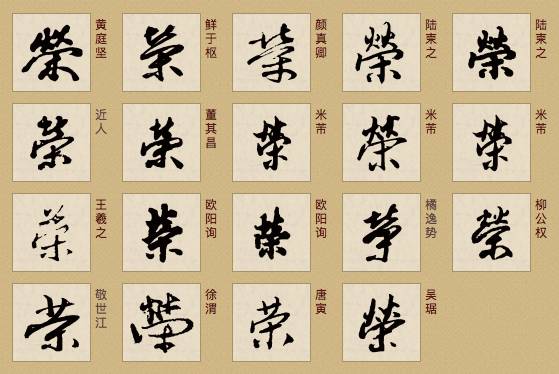 榮 黄庭坚
榮 鲜于枢
榮 颜真卿
榮 陆柬之
榮 陆柬之
榮 近人
榮 董其昌
榮 米芾
榮 米芾
榮 米芾
榮 王羲之
榮 欧阳询
榮 欧阳询
榮 橘逸势
榮 柳公权
榮 敬世江
榮 徐渭
榮 唐寅
榮 吴琚